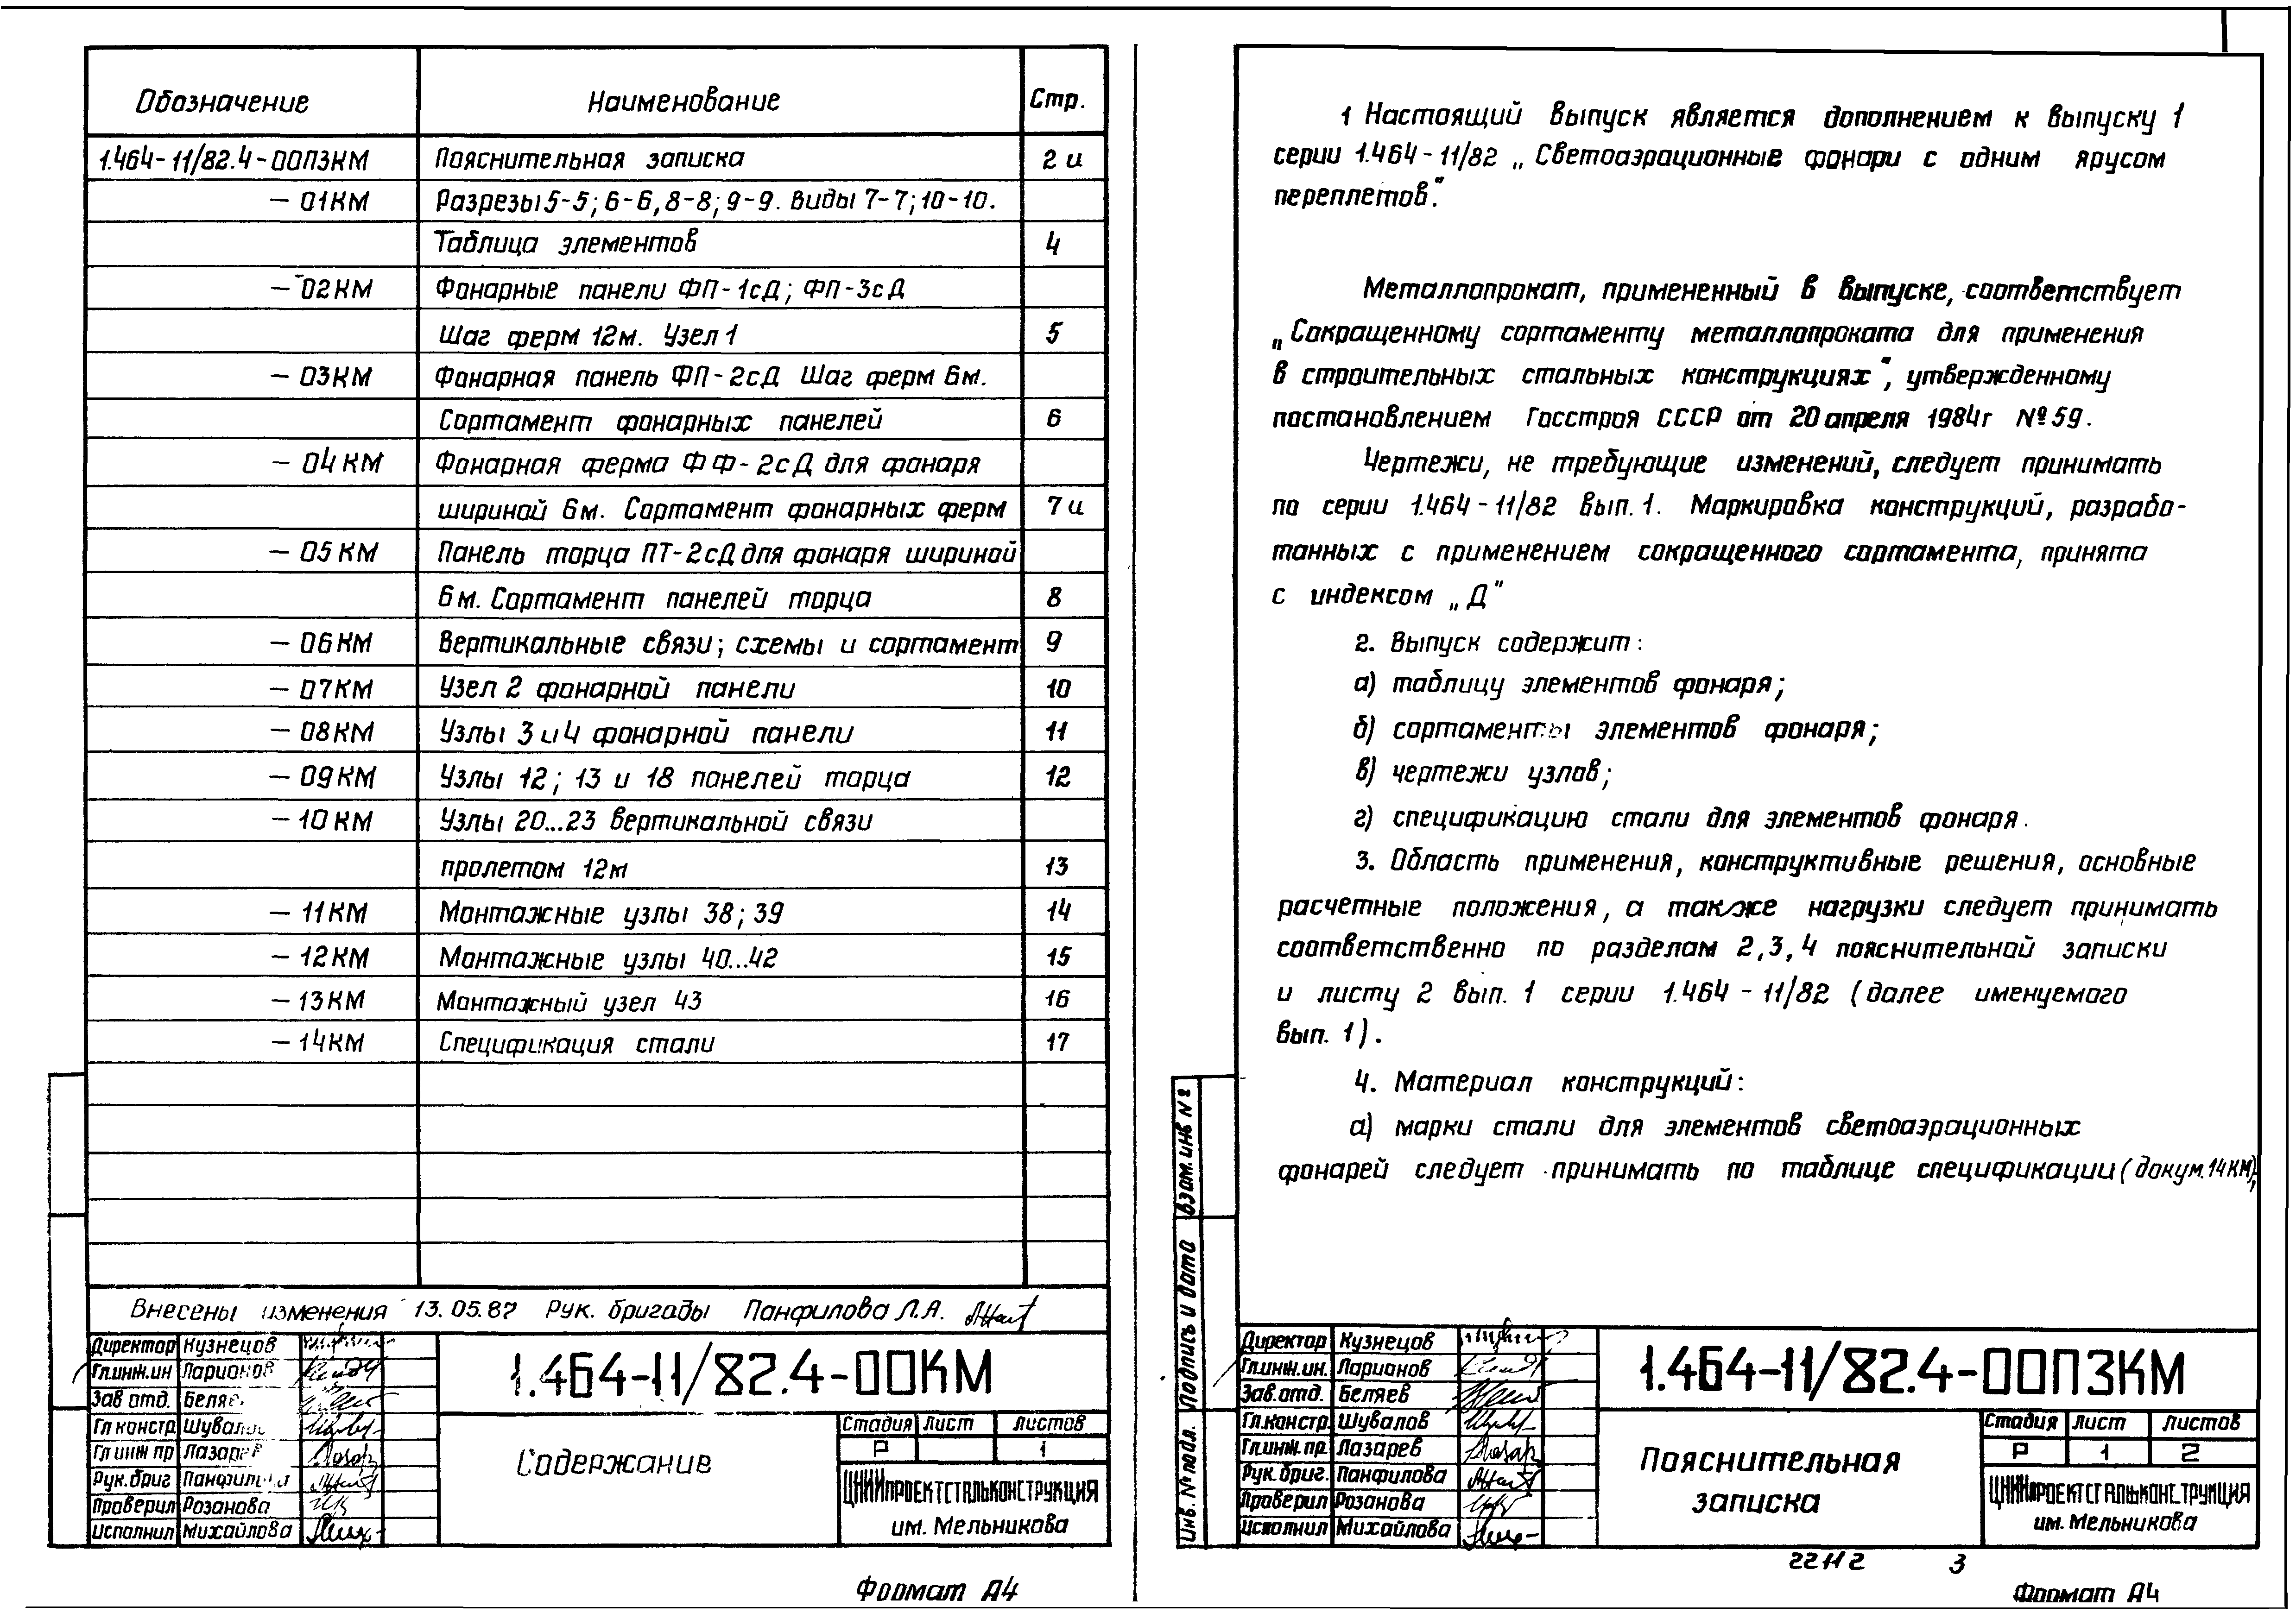 Обозначение Наименование Стр.
1.464-11/82.4-00ПЗКМ Пояснительная записка 2и
- 01КМ Разрезы 5-5; 6-6, 8-8; 9-9. Виды 7-7; 10-10.
Таблица элементов 4
- 02КМ Фонарные панели ФП-1сД; ФП-3сД
Шаг ферм 12м. Узел 1 5
- 03КМ Фонарная панель ФП-2сД Шаг ферм 6м.
Сортамент фонарных панелей 6
- 04КМ Фонарная ферма ФФ-2сД для фонаря
шириной 6м. Сортамент фонарных ферм 7и
- 05КМ Панель торца ПТ-2сД для фонаря шириной
6м. Сортамент панелей торца 8
- 06КМ Вертикальные связи; схемы и сортамент 9
- 07КМ Узел 2 фонарной панели 10
- 08КМ Узлы 3 и 4 фонарной панели 11
- 09КМ Узлы 12; 13 и 18 панелей торца 12
- 10КМ Узлы 20...23 вертикальной связи
пролетом 12м 13
- 11КМ Монтажные узлы 38; 39 14
- 12КМ Монтажные узлы 40...42 15
- 13КМ Монтажный узел 43 16
- 14КМ Спецификация стали 17
Внесены изменения 13.05.87 Рук. бригады Панфилова Л.А.
Директор Кузнецов
Гл.инж.ин Ларионов
Зав отд. Беляев
Гл констр. Шувалов
Гл инж пр Лазарев
Рук.бриг Панфилова
Проверил Розанова
Исполнил Михайлова
1.464-11/82.4-00КМ
Содержание
Стадия Лист Листов
Р 1
ЦНИИпроектстальконструкция
им. Мельникова
Формат А4
1 Настоящий выпуск является дополнением к выпуску 1
серии 1.464-11/82 „Светоаэрационные фонари с одним ярусом
переплетов".
Металлопрокат, примененный в выпуске, соответствует
„Сокращенному сортаменту металлопроката для применения
в строительных стальных конструкциях", утвержденному
постановлением Госстроя СССР от 20 апреля 1984г №59.
Чертежи, не требующие изменений, следует принимать
по серии 1.464-11/82 вып.1. Маркировка конструкций, разрабо-
танных с применением сокращенного сортамента, принята
с индексом „Д"
2. Выпуск содержит:
а) таблицу элементов фонаря;
б) сортаменты элементов фонаря;
в) чертежи узлов;
г) спецификацию стали для элементов фонаря.
3. Область применения, конструктивные решения, основные
расчетные положения, а также нагрузки следует принимать
соответственно по разделам 2,3,4 пояснительной записки
и листу 2 вып. 1 серии 1.464-11/82 (далее именуемого
вып. 1).
4. Материал конструкций:
а) марки стали для элементов светоаэрационных
фонарей следует принимать по таблице спецификации (докум.14КМ);
Взам. инв №
Подпись и дата
Инв. № подл.
Директор Кузнецов
Гл.инж.ин. Ларионов
Зав.отд. Беляев
Гл.констр. Шувалов
Гл.инж.пр. Лазарев
Рук.бриг. Панфилова
Проверил Розанова
Исполнил Михайлова
1.464-11/82.4-00ПЗКМ
Пояснительная
записка
Стадия Лист Листов
Р 1 2
ЦНИИпроектстальконструкция
им. Мельникова
22112 3
Формат А4